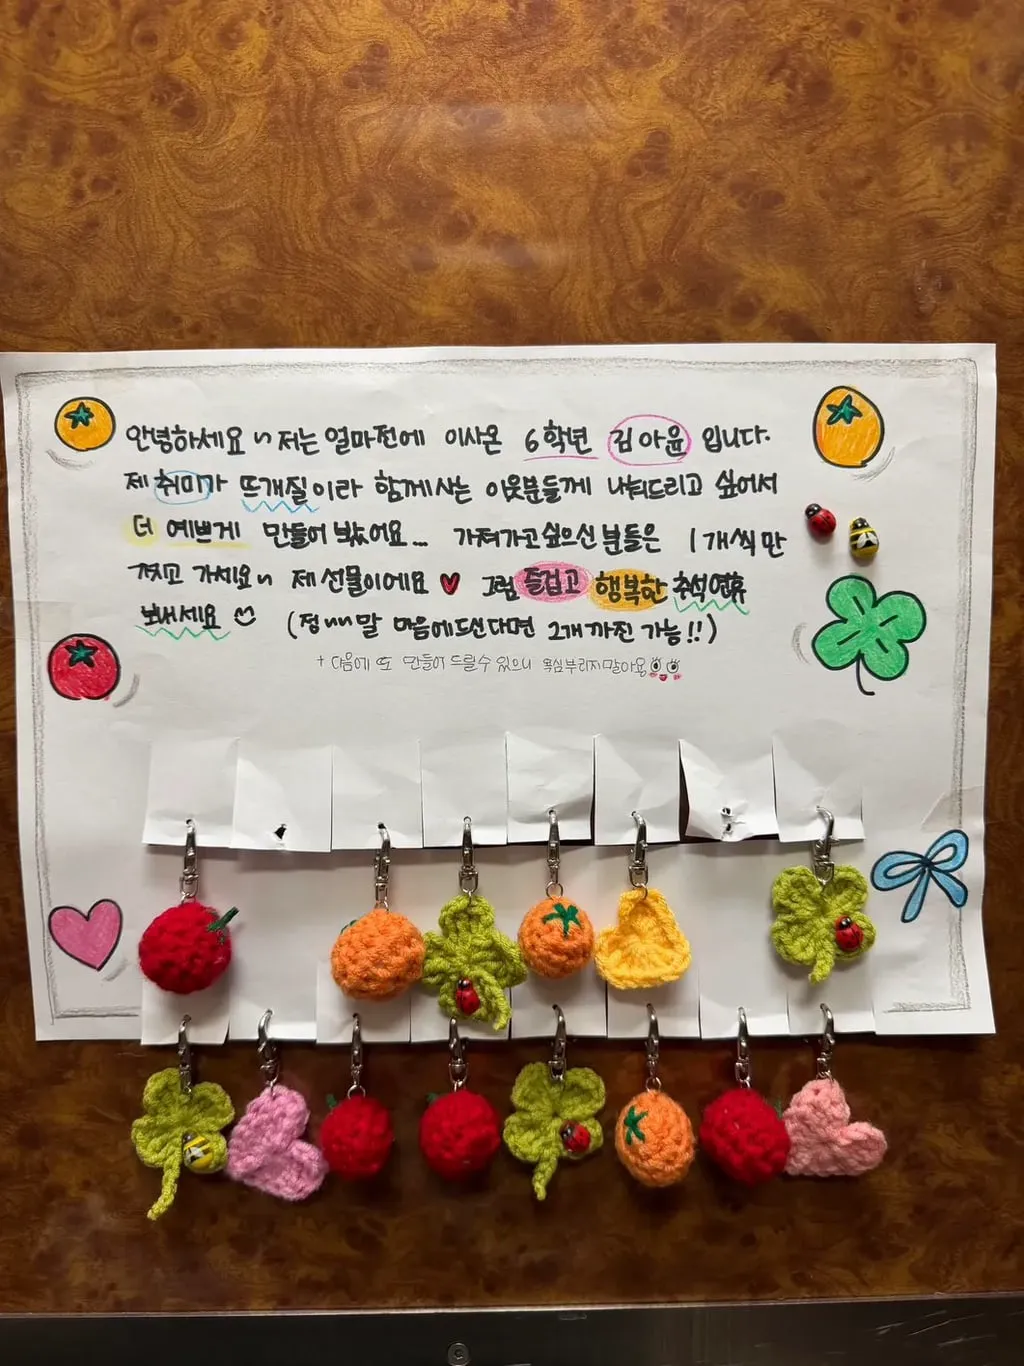 안녕하세요~ 저는 얼마전에 이사온 6학년 김아윤 입니다.
제 취미가 뜨개질이라 함께사는 이웃분들께 나눠드리고 싶어서
더 예쁘게 만들어 봤어요... 가져가고싶으신 분들은 1개씩만
가지고 가세요~ 제 선물이에요♥ 그럼 즐겁고 행복한 추석연휴
보내세요 (정~~말 마음에드신다면 2개까진 가능!!)
+ 다음에 또 만들어 드릴수 있으니 욕심부리지말아용